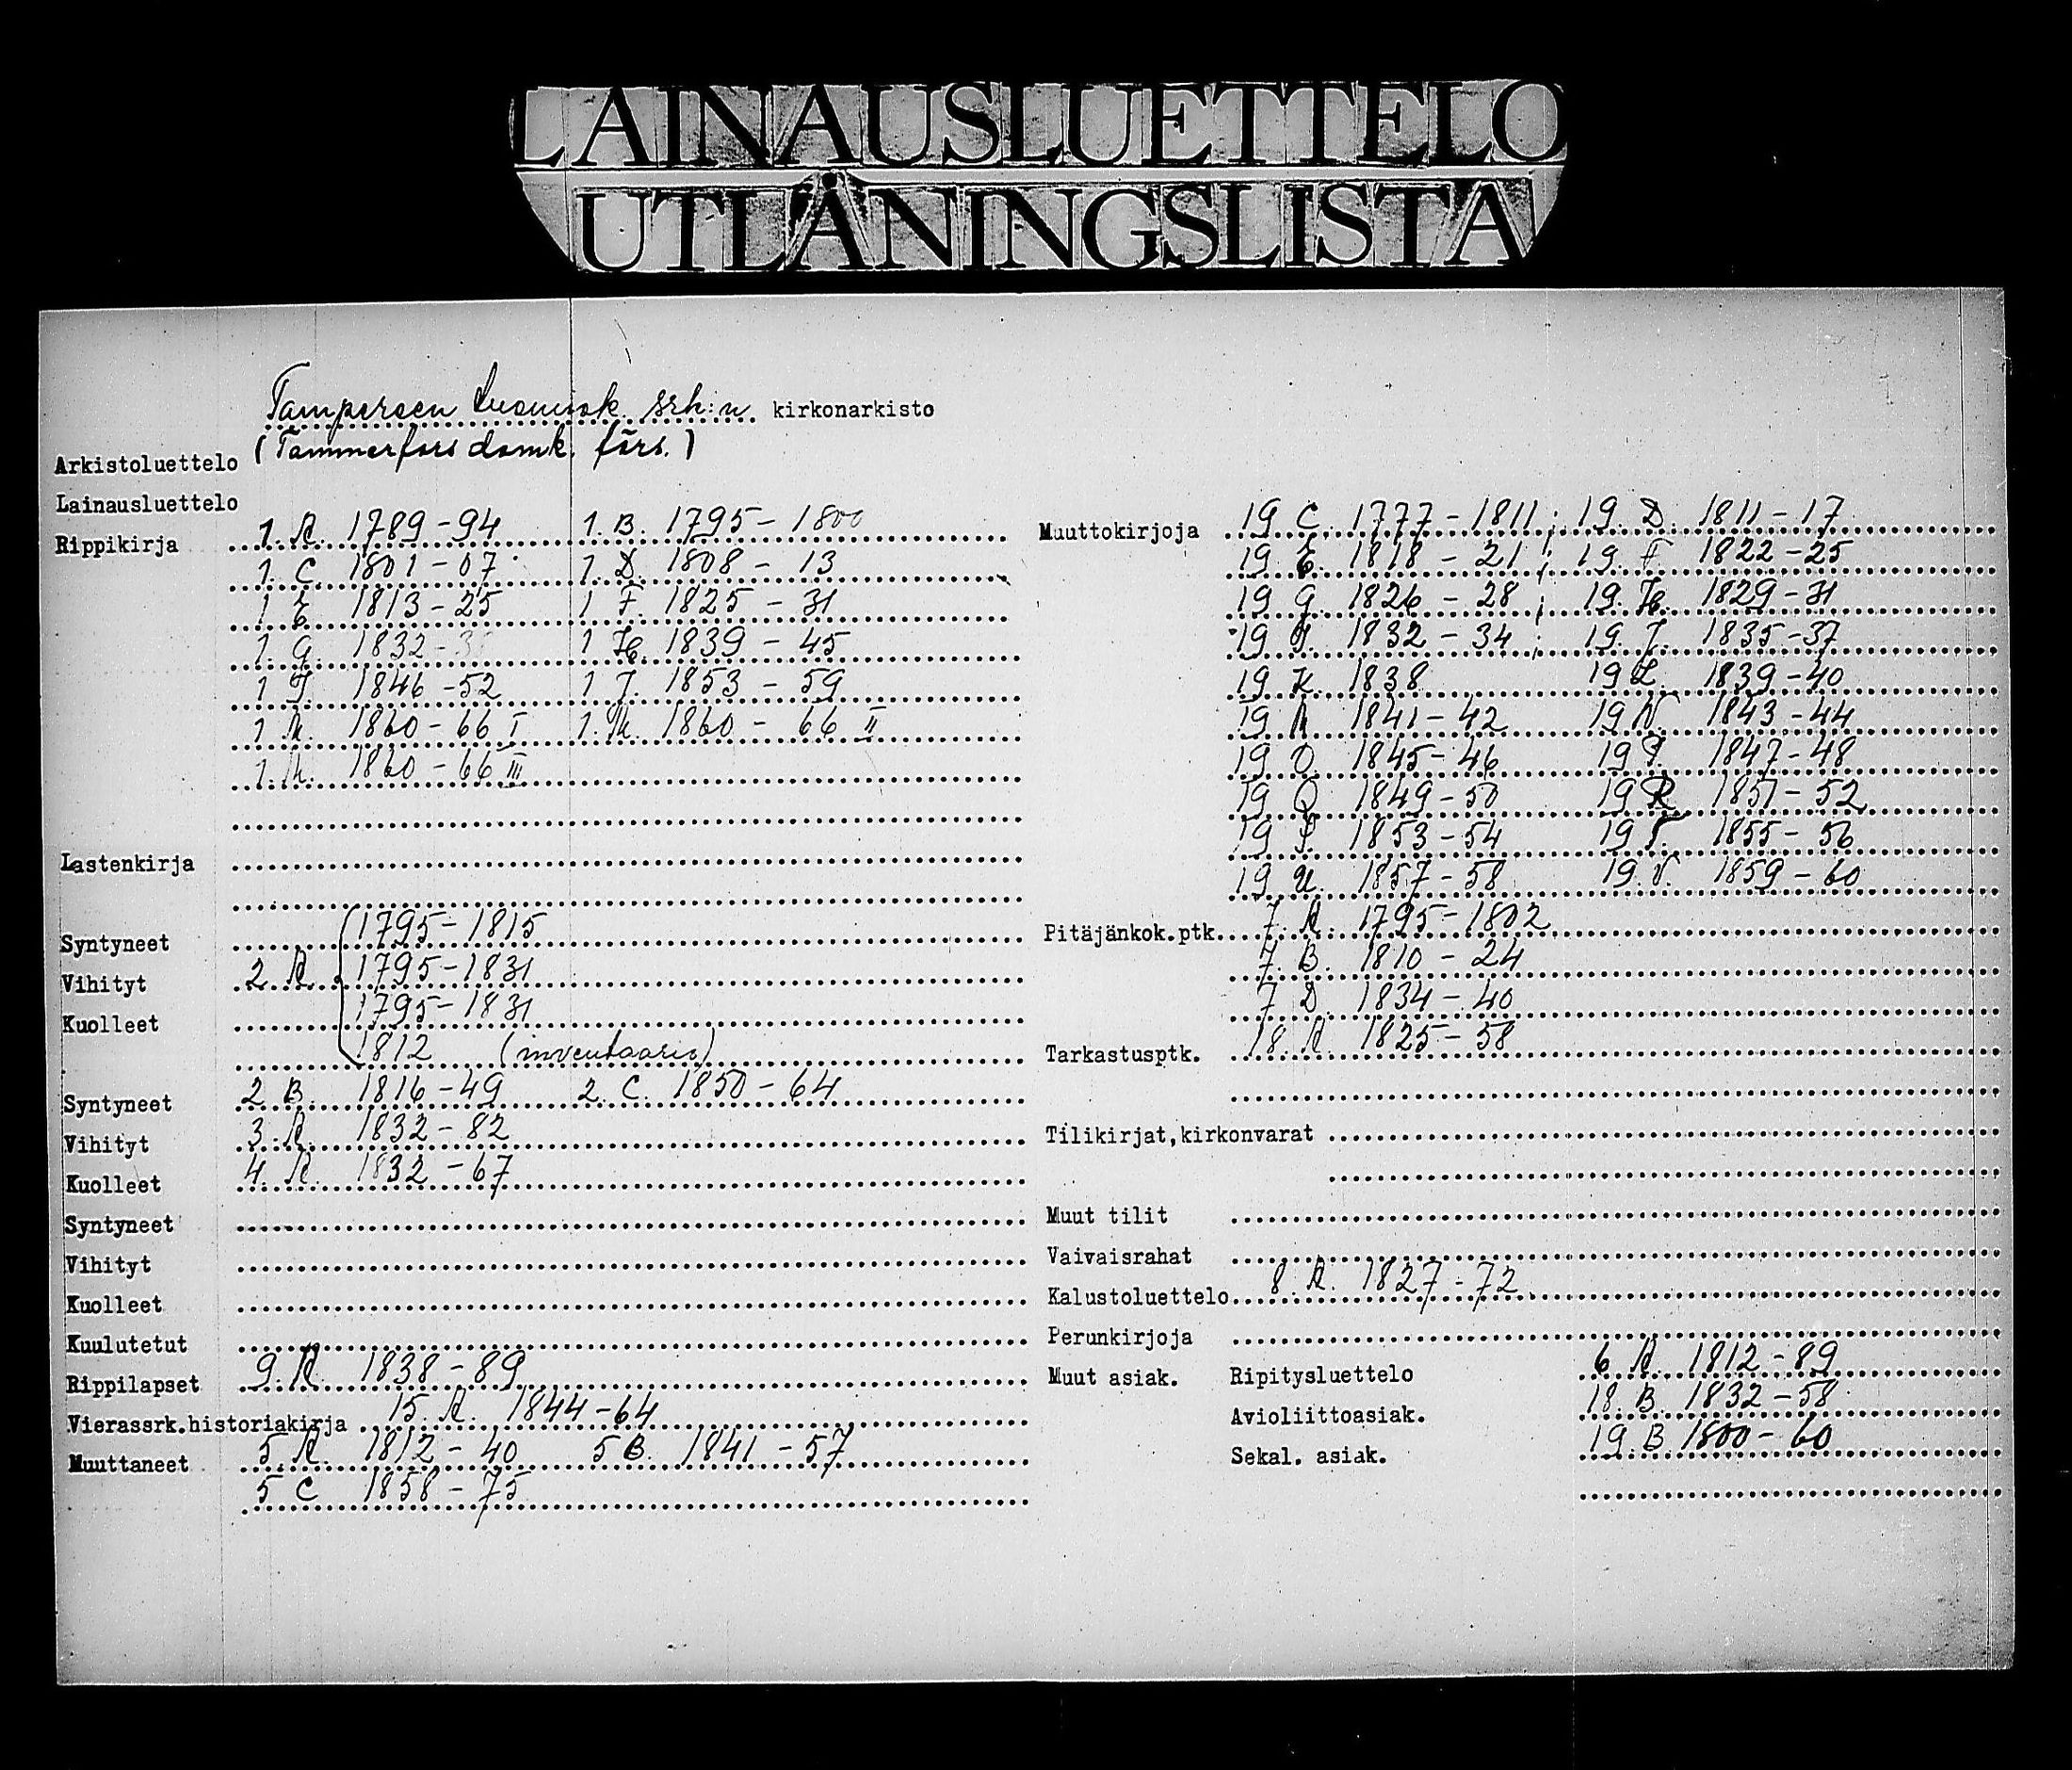 LAINAUSLUETTELO
UTLÅNINGSLISTA
Tampereen tuomiok. srk:n kirkonarkisto
(Tammerfors domk. förs.)
Arkistoluettelo
Lainausluettelo
Rippikirja 1 A. 1789-94 1. B. 1795-1800
1. C. 1801-07 1. D. 1808-13
1 E 1813-25 1 F. 1825-31
1. G. 1832- 1 H. 1839-45
1 I 1846-52 1 J. 1853-59
1 K. 1860-66 I 1. K. 1860-66 II
1. K. 1860-66 III
Lastenkirja
Syntyneet 1795-1815
Vihityt 2 A. 1795-1831
Kuolleet 1795-1831
1812 (inventaario)
Syntyneet 2 B. 1816-49 2. C. 1850-64
Vihityt 3. A. 1832-82
Kuolleet 4 A. 1832-67
Syntyneet
Vihityt
Kuolleet
Kuulutetut
Rippilapset 9. A. 1838-89
Vierassrk.historiakirja 15. A. 1844-64
Muuttaneet 5. A. 1812-40 5 B. 1841-57
5 C 1858-75
Muuttokirjoja 19 C. 1777-1811; 19. D. 1811-17
19 E. 1818-21; 19. F 1822-25
19 G. 1826-28; 19. H. 1829-31
19 I. 1832-34; 19. J. 1835-37
19 K. 1838 19 L. 1839-40
19 M 1841-42 19 N. 1843-44
19 O. 1845-46 19 P. 1847-48
19 Q 1849-50 19 R 1851-52
19 S. 1853-54 19 T. 1855-56
19 U. 1857-58 19. V. 1859-60
Pitäjänkok.ptk. 7. A. 1795-1802
7. B. 1810-24
7 D. 1834-40
Tarkastusptk. 18. A. 1825-58
Tilikirjat,kirkonvarat
Muut tilit
Vaivaisrahat
Kalustoluettelo 8 A. 1827-72
Perunkirjoja
Muut asiak. Ripitysluettelo 6 A. 1812-89
Avioliittoasiak. 18. B. 1832-58
Sekal. asiak. 19. B. 1800-60